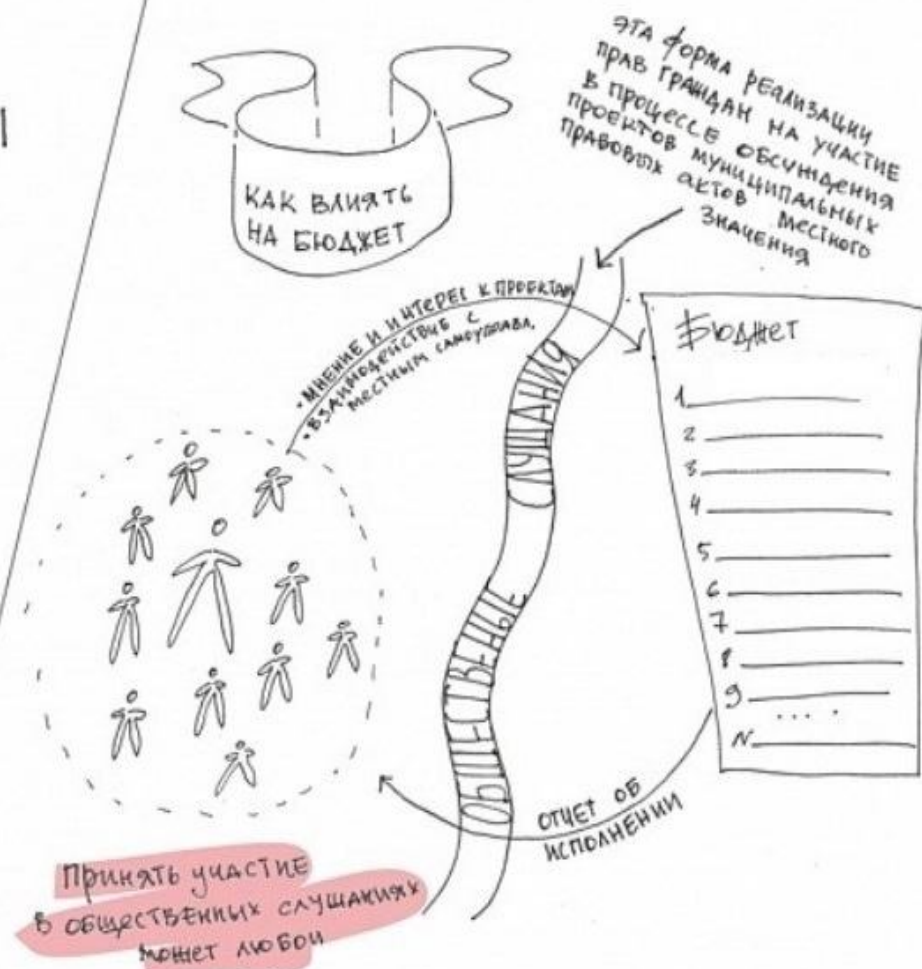 КАК ВЛИЯТЬ
НА БЮДЖЕТ
ЭТА ФОРМА РЕАЛИЗАЦИИ
ПРАВ ГРАЖДАН НА УЧАСТИЕ
В ПРОЦЕССЕ ОБСУЖДЕНИЯ
ПРОЕКТОВ МУНИЦИПАЛЬНЫХ
ПРАВОВЫХ АКТОВ МЕСТНОГО
ЗНАЧЕНИЯ
• МНЕНИЕ И ИНТЕРЕС К ПРОЕКТАМ
• ВЗАИМОДЕЙСТВИЕ С
МЕСТНЫМ САМОУПРАВЛ.
ОБЩЕСТВЕННЫЕ
СЛУШАНИЯ
Бюджет
1
2
3
4
5
6
7
8
9
....
N
ОТЧЕТ ОБ
ИСПОЛНЕНИИ
ПРИНЯТЬ УЧАСТИЕ
В ОБЩЕСТВЕННЫХ СЛУШАНИЯХ
МОЖЕТ ЛЮБОЙ